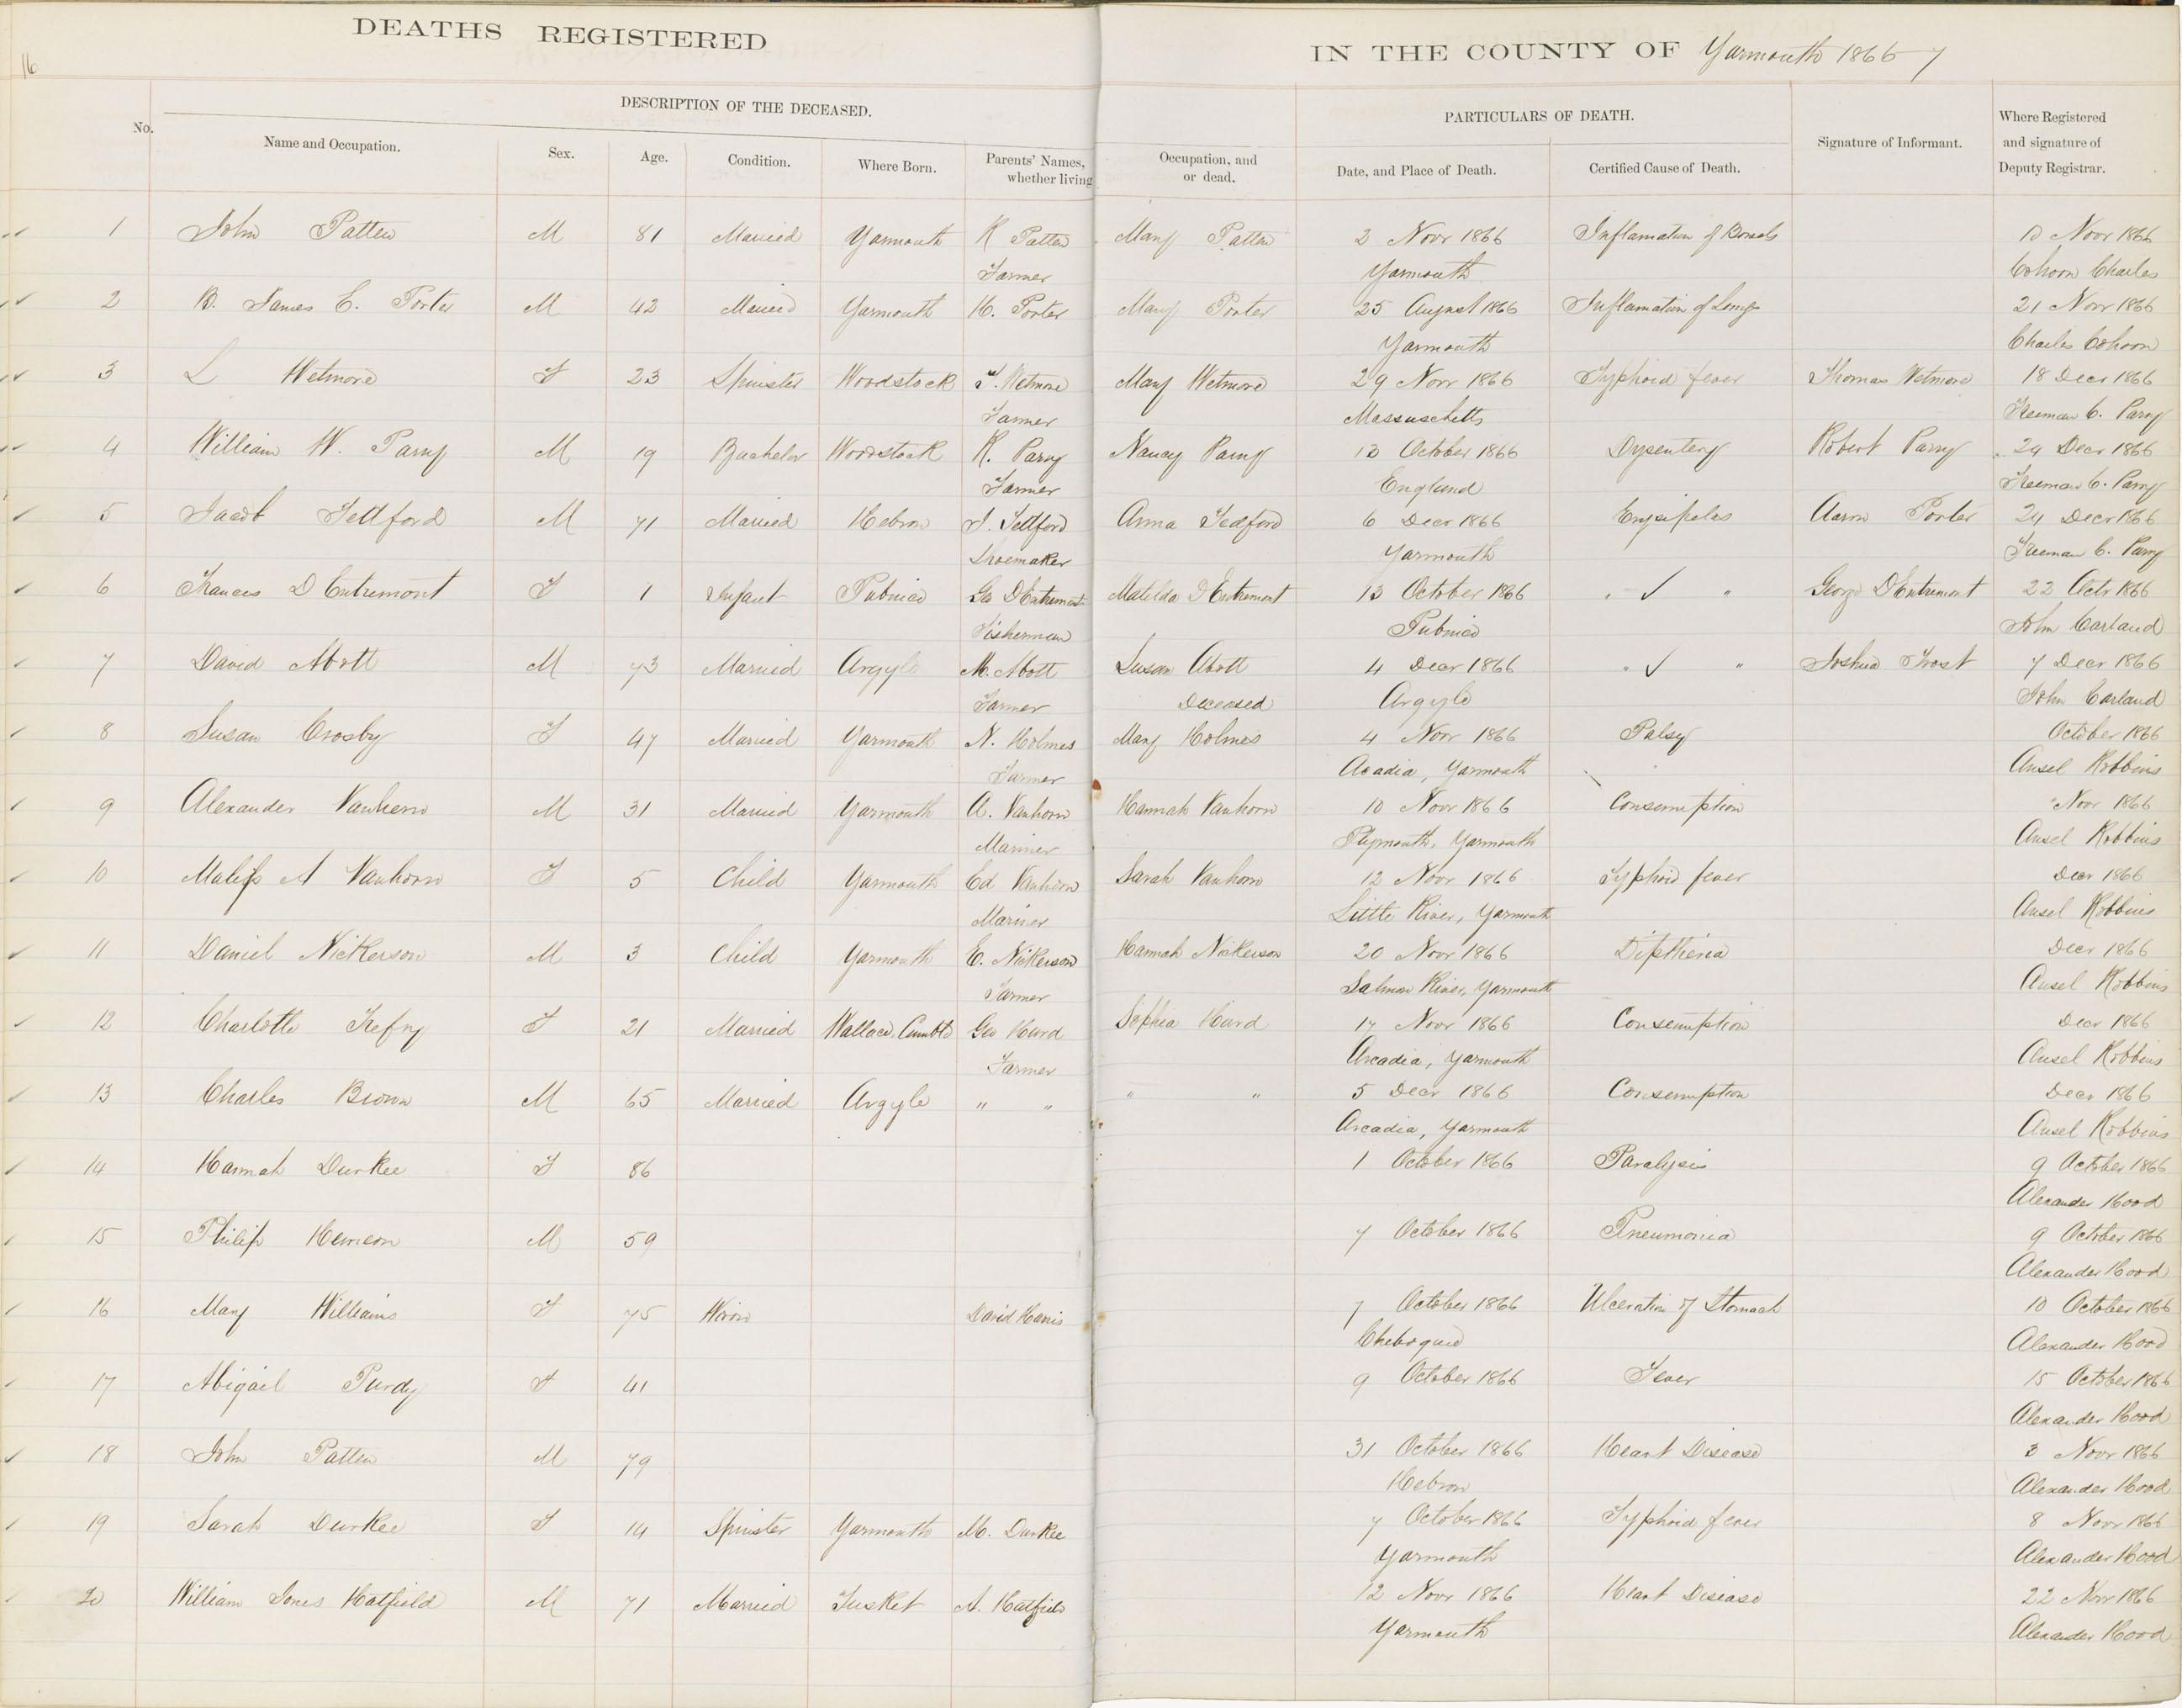 DEATHS REGISTERED IN THE COUNTY OF Yarmouth 1866 7
16
DESCRIPTION OF THE DECEASED. PARTICULARS OF DEATH. Where Registered
No. Name and Occupation. Sex. Age. Condition. Where Born. Parents' Names, Occupation, and Date, and Place of Death. Certified Cause of Death. Signature of Informant. and signature of
whether living or dead. Deputy Registrar.
1 John Patten M 81 Married Yarmouth R Patten Mary Patten 2 Novr 1866 Inflamation of Bowels 10 Novr 1866
Farmer Yarmouth Cohoon Charles
2 B. James E. Porter M 42 Married Yarmouth H. Porter Mary Porter 25 August 1866 Inflamation of Lungs 21 Novr 1866
Yarmouth Charles Cohoon
3 L Wetmore F 23 Spinster Woodstock T. Wetmore Mary Wetmore 29 Novr 1866 Typhoid fever Thomas Wetmore 18 Decr 1866
Farmer Massuschetts Freeman C. Parry
4 William W. Parry M 19 Bachelor Woodstock R. Parry Nancy Parry 13 October 1866 Dysentery Robert Parry 24 Decr 1866
Farmer England Freeman C. Parry
5 Jacob Tettford M 71 Married Hebron J. Tettford Anna Tedford 6 Decr 1866 Erysipelas Aaron Porter 24 Decr 1866
Shoemaker Yarmouth Freeman C. Parry
6 Frances D Entremont F 1 Infant Pubnico Geo D Entremont Matilda D Entremont 13 October 1866 " ✓ " George D Entremont 22 Octr 1866
Fisherman Pubnico John Carland
7 David Abott M 73 Married Argyle M. Abott Susan Abott 4 Decr 1866 " ✓ " Joshua Frost 7 Decr 1866
Farmer Deceased Argyle John Carland
8 Susan Crosby F 47 Married Yarmouth N. Holmes Mary Holmes 4 Novr 1866 Palsy October 1866
Farmer Acadia, Yarmouth Ansel Robbins
9 Alexander Vanhorn M 31 Married Yarmouth A. Vanhorn Hannah Vanhorn 10 Novr 1866 Consemption Novr 1866
Mariner Plymouth, Yarmouth Ansel Robbins
10 A Vanhorn F 5 Child Yarmouth Ed Vanhorn Sarah Vanhorn 12 Novr 1866 Typhoid fever Decr 1866
Mariner Little River, Yarmouth Ansel Robbins
11 Daniel Nickerson M 3 Child Yarmouth E. Nickerson Hannah Nickerson 20 Novr 1866 Diptheria Decr 1866
Farmer Salmon River, Yarmouth Ansel Robbins
12 Charlotte Trefry F 21 Married Wallace, Cumbld Geo Hurd Sophia Hurd 17 Novr 1866 Consemption Decr 1866
Farmer Arcadia, Yarmouth Ansel Robbins
13 Charles Brown M 65 Married Argyle " " " " 5 Decr 1866 Consemption Decr 1866
Arcadia, Yarmouth Ansel Robbins
14 Hannah Durkee F 86 1 October 1866 Paralysis 9 October 1866
Alexander Hood
15 Philip Hemeon M 59 7 October 1866 Pneumonia 9 October 1866
Alexander Hood
16 Mary Williams F 75 Widow David Harris 7 October 1866 Ulceration of Stomach 10 October 1866
Chebogue Alexander Hood
17 Abigail Purdy F 41 9 October 1866 Fever 15 October 1866
Alexander Hood
18 John Patten M 79 31 October 1866 Heart Disease 3 Novr 1866
Hebron Alexander Hood
19 Sarah Durkee F 14 Spinster Yarmouth M. Durkee 7 October 1866 Typhoid fever 8 Novr 1866
Yarmouth Alexander Hood
20 William Jones Hatfield M 71 Married Tusket A. Hatfield 12 Novr 1866 Heart Disease 22 Novr 1866
Yarmouth Alexander Hood